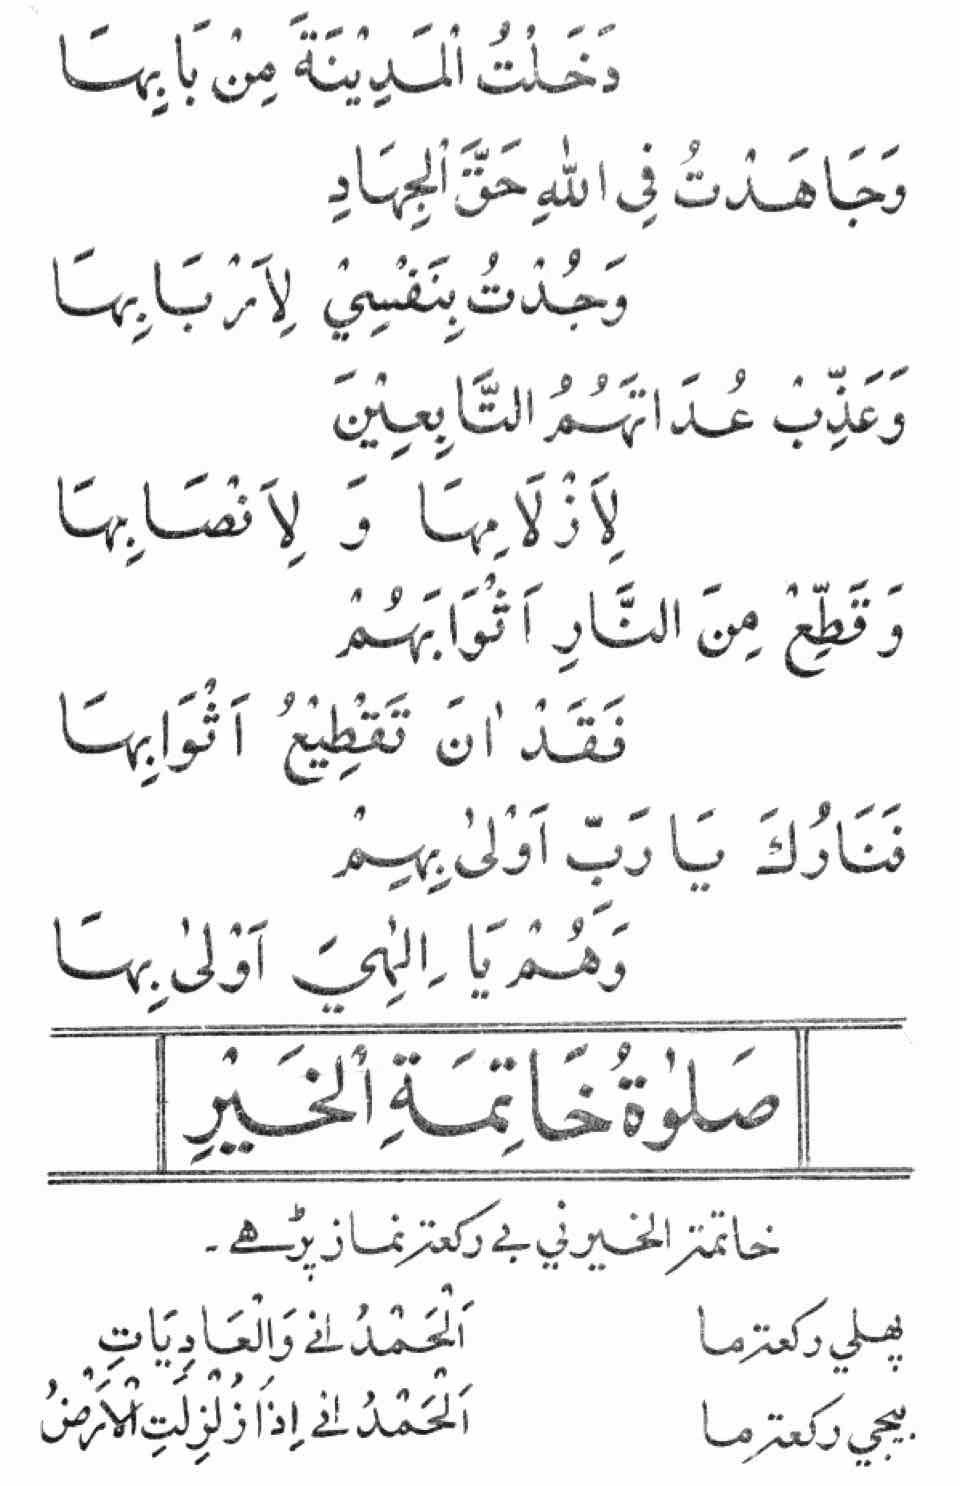 دَخَلْتُ الْمَدِيْنَةَ مِنْ بَابِهَا
وَجَاهَدْتُ فِي اللهِ حَقَّ الْجِهَادِ
وَجُدْتُ بِنَفْسِيْ لِاَرْبَابِهَا
وَعَذِّبْ عُدَاتَهُمُ التَّابِعِيْنَ
لِاَزْلَامِهَا وَ لِاَنْصَابِهَا
وَقَطِّعْ مِنَ النَّارِ اَثْوَابَهُمْ
فَقَدْ اٰنَ تَقْطِيْعُ اَثْوَابِهَا
فَنَارُكَ يَا رَبِّ اَوْلٰى بِهِمْ
وَهُمْ يَا اِلٰهِيَ اَوْلٰى بِهَا
صَلٰوةُ خَاتِمَةِ الْخَيْرِ
خاتمة الخير ني بے ركعة نماز پڑھے ۔
پهلي ركعة ما اَلْحَمْدُ انے وَالْعَادِيَاتِ
بيجي ركعة ما اَلْحَمْدُ انے اِذَا زُلْزِلَتِ الْاَرْضُ